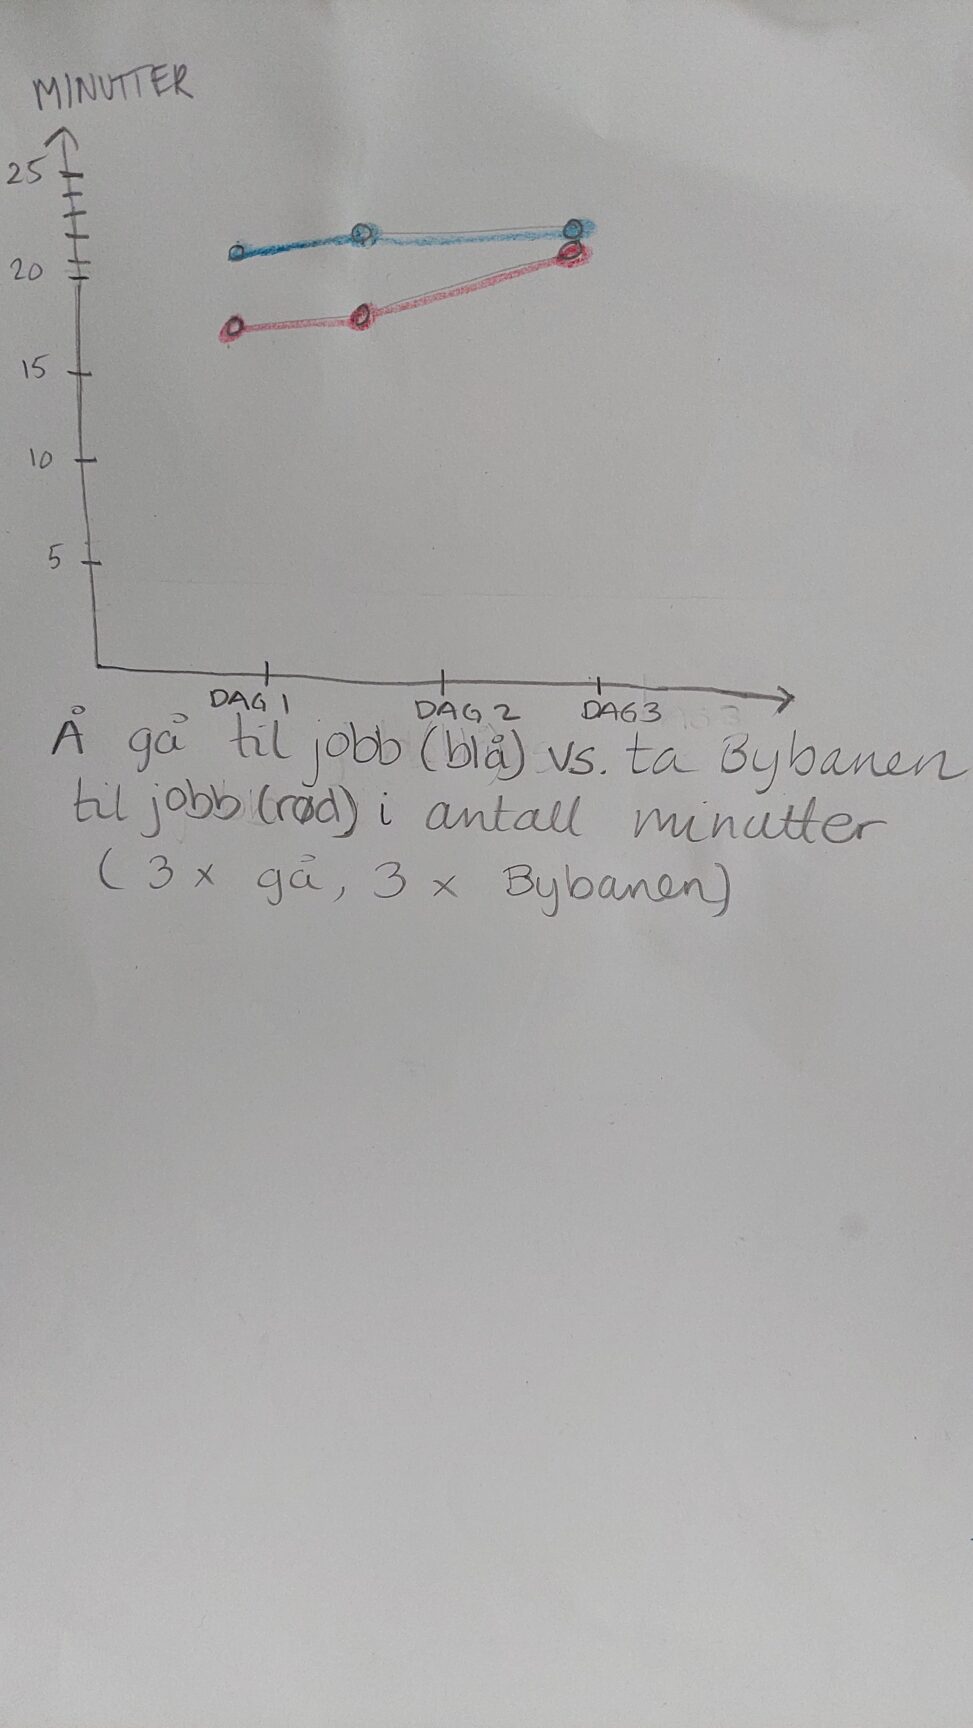 MINUTTER
25
20
15
10
5
DAG 1 DAG 2 DAG3
Å gå til jobb (blå) vs. ta Bybanen
til jobb (rød) i antall minutter
(3 x gå, 3 x Bybanen)